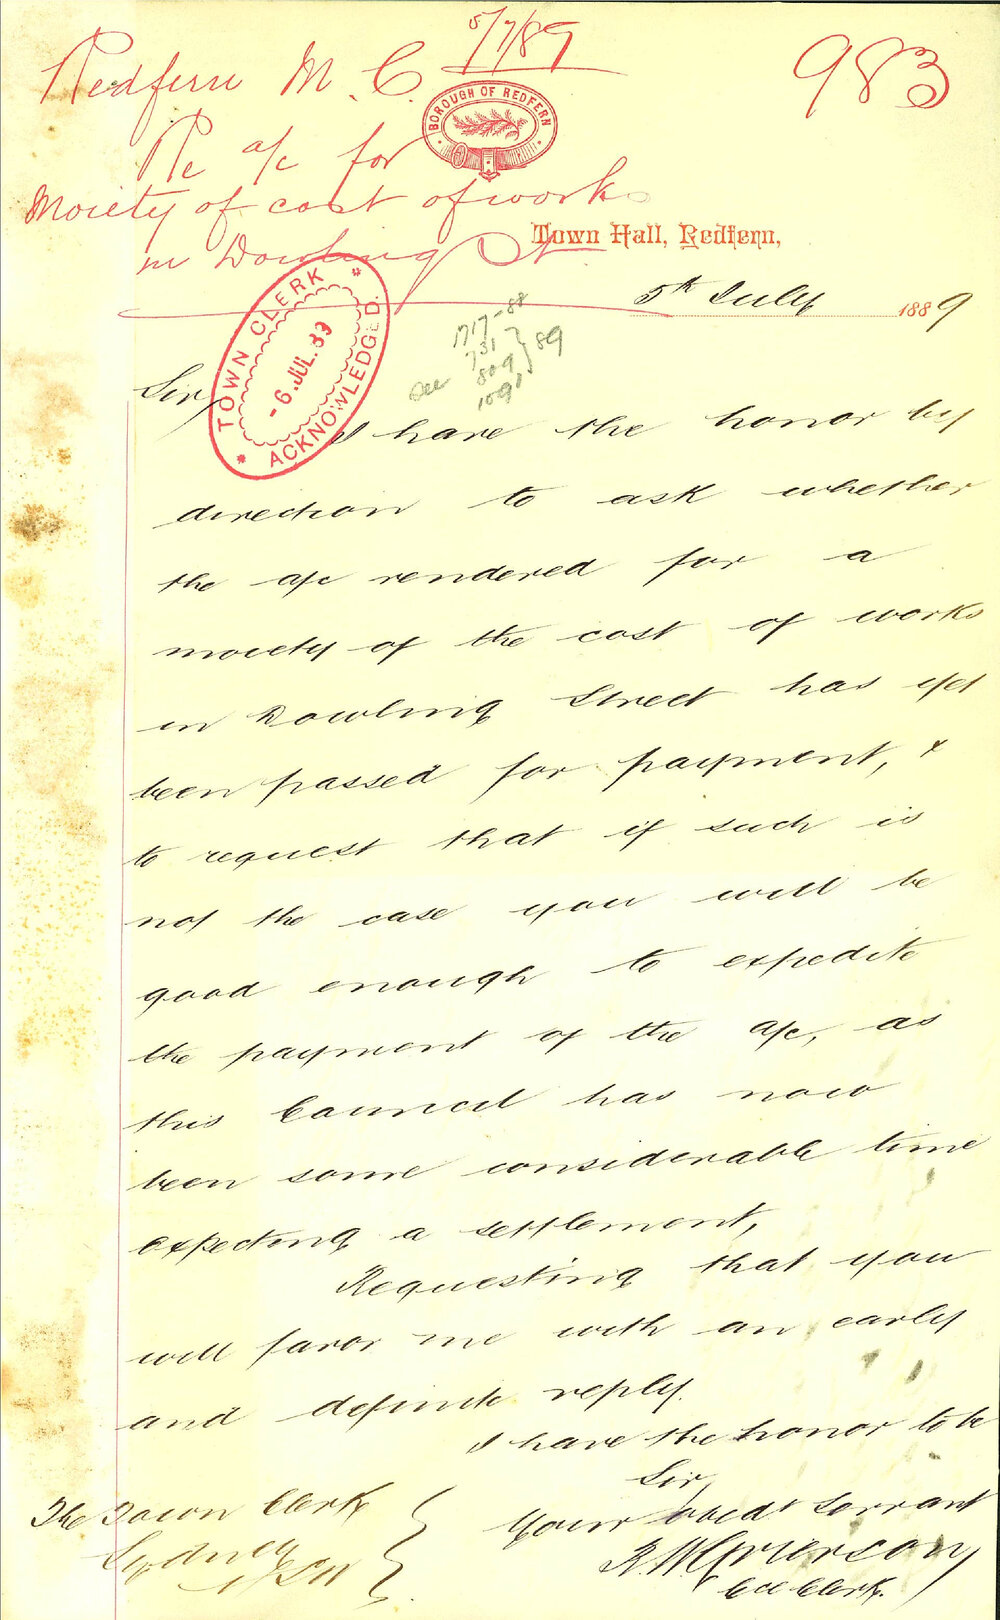 5/7/89
983
Redfern M. C.
BOROUGH OF REDFERN
Re a/c for
Moiety of cost of works
in Dowling St
Town Hall, Redfern,
5th July 1889
TOWN CLERK
6.JUL.89
ACKNOWLEDGED.
1717-88
731
809
109
} 89
Sir,
I have the honor by
direction to ask whether
the a/c rendered for a
moiety of the cost of works
in Dowling Street has yet
been passed for payment, &
to request that if such is
not the case you will be
good enough to expedite
the payment of the a/c, as
this Council has now
been some considerable time
expecting a settlement,
Requesting that you
will favor me with an early
and definite reply.
I have the honor to be
Sir,
Your obedt servant
Clerk.
The Town Clerk
Sydney